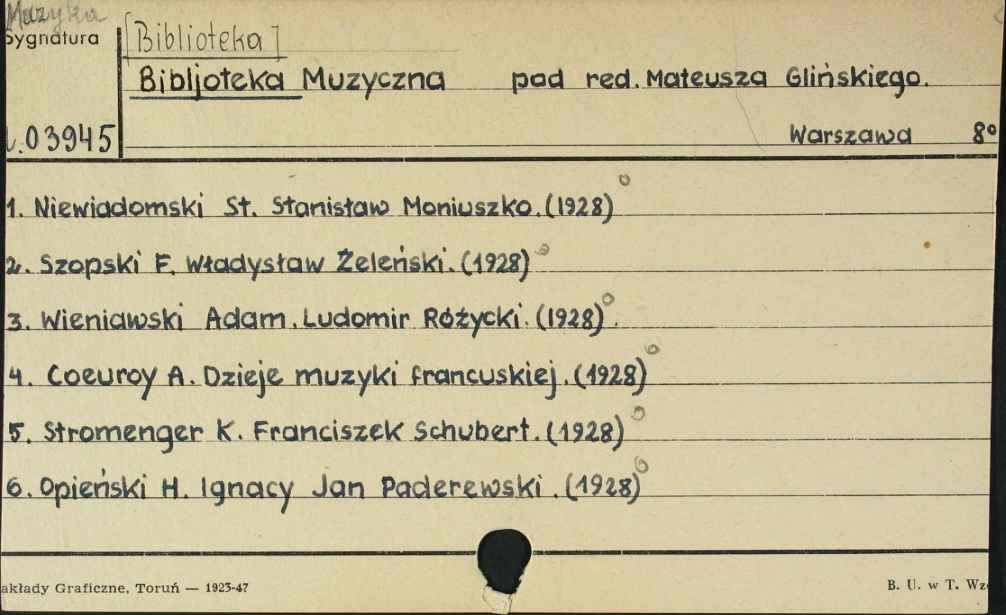 Muzyka
Sygnatura
[Biblioteka]
Bibljoteka Muzyczna pod red. Mateusza Glińskiego.
03945
Warszawa 8º
1. Niewiadomski St. Stanisław Moniuszko. (1928)
2. Szopski F. Władysław Żeleński. (1928)
3. Wieniawski Adam. Ludomir Różycki. (1928)
4. Coeuroy A. Dzieje muzyki francuskiej. (1928)
5. Stromenger K. Franciszek Schubert. (1928)
6. Opieński H. Ignacy Jan Paderewski. (1928)
akłady Graficzne, Toruń — 1923-47
B. U. w T. Wz